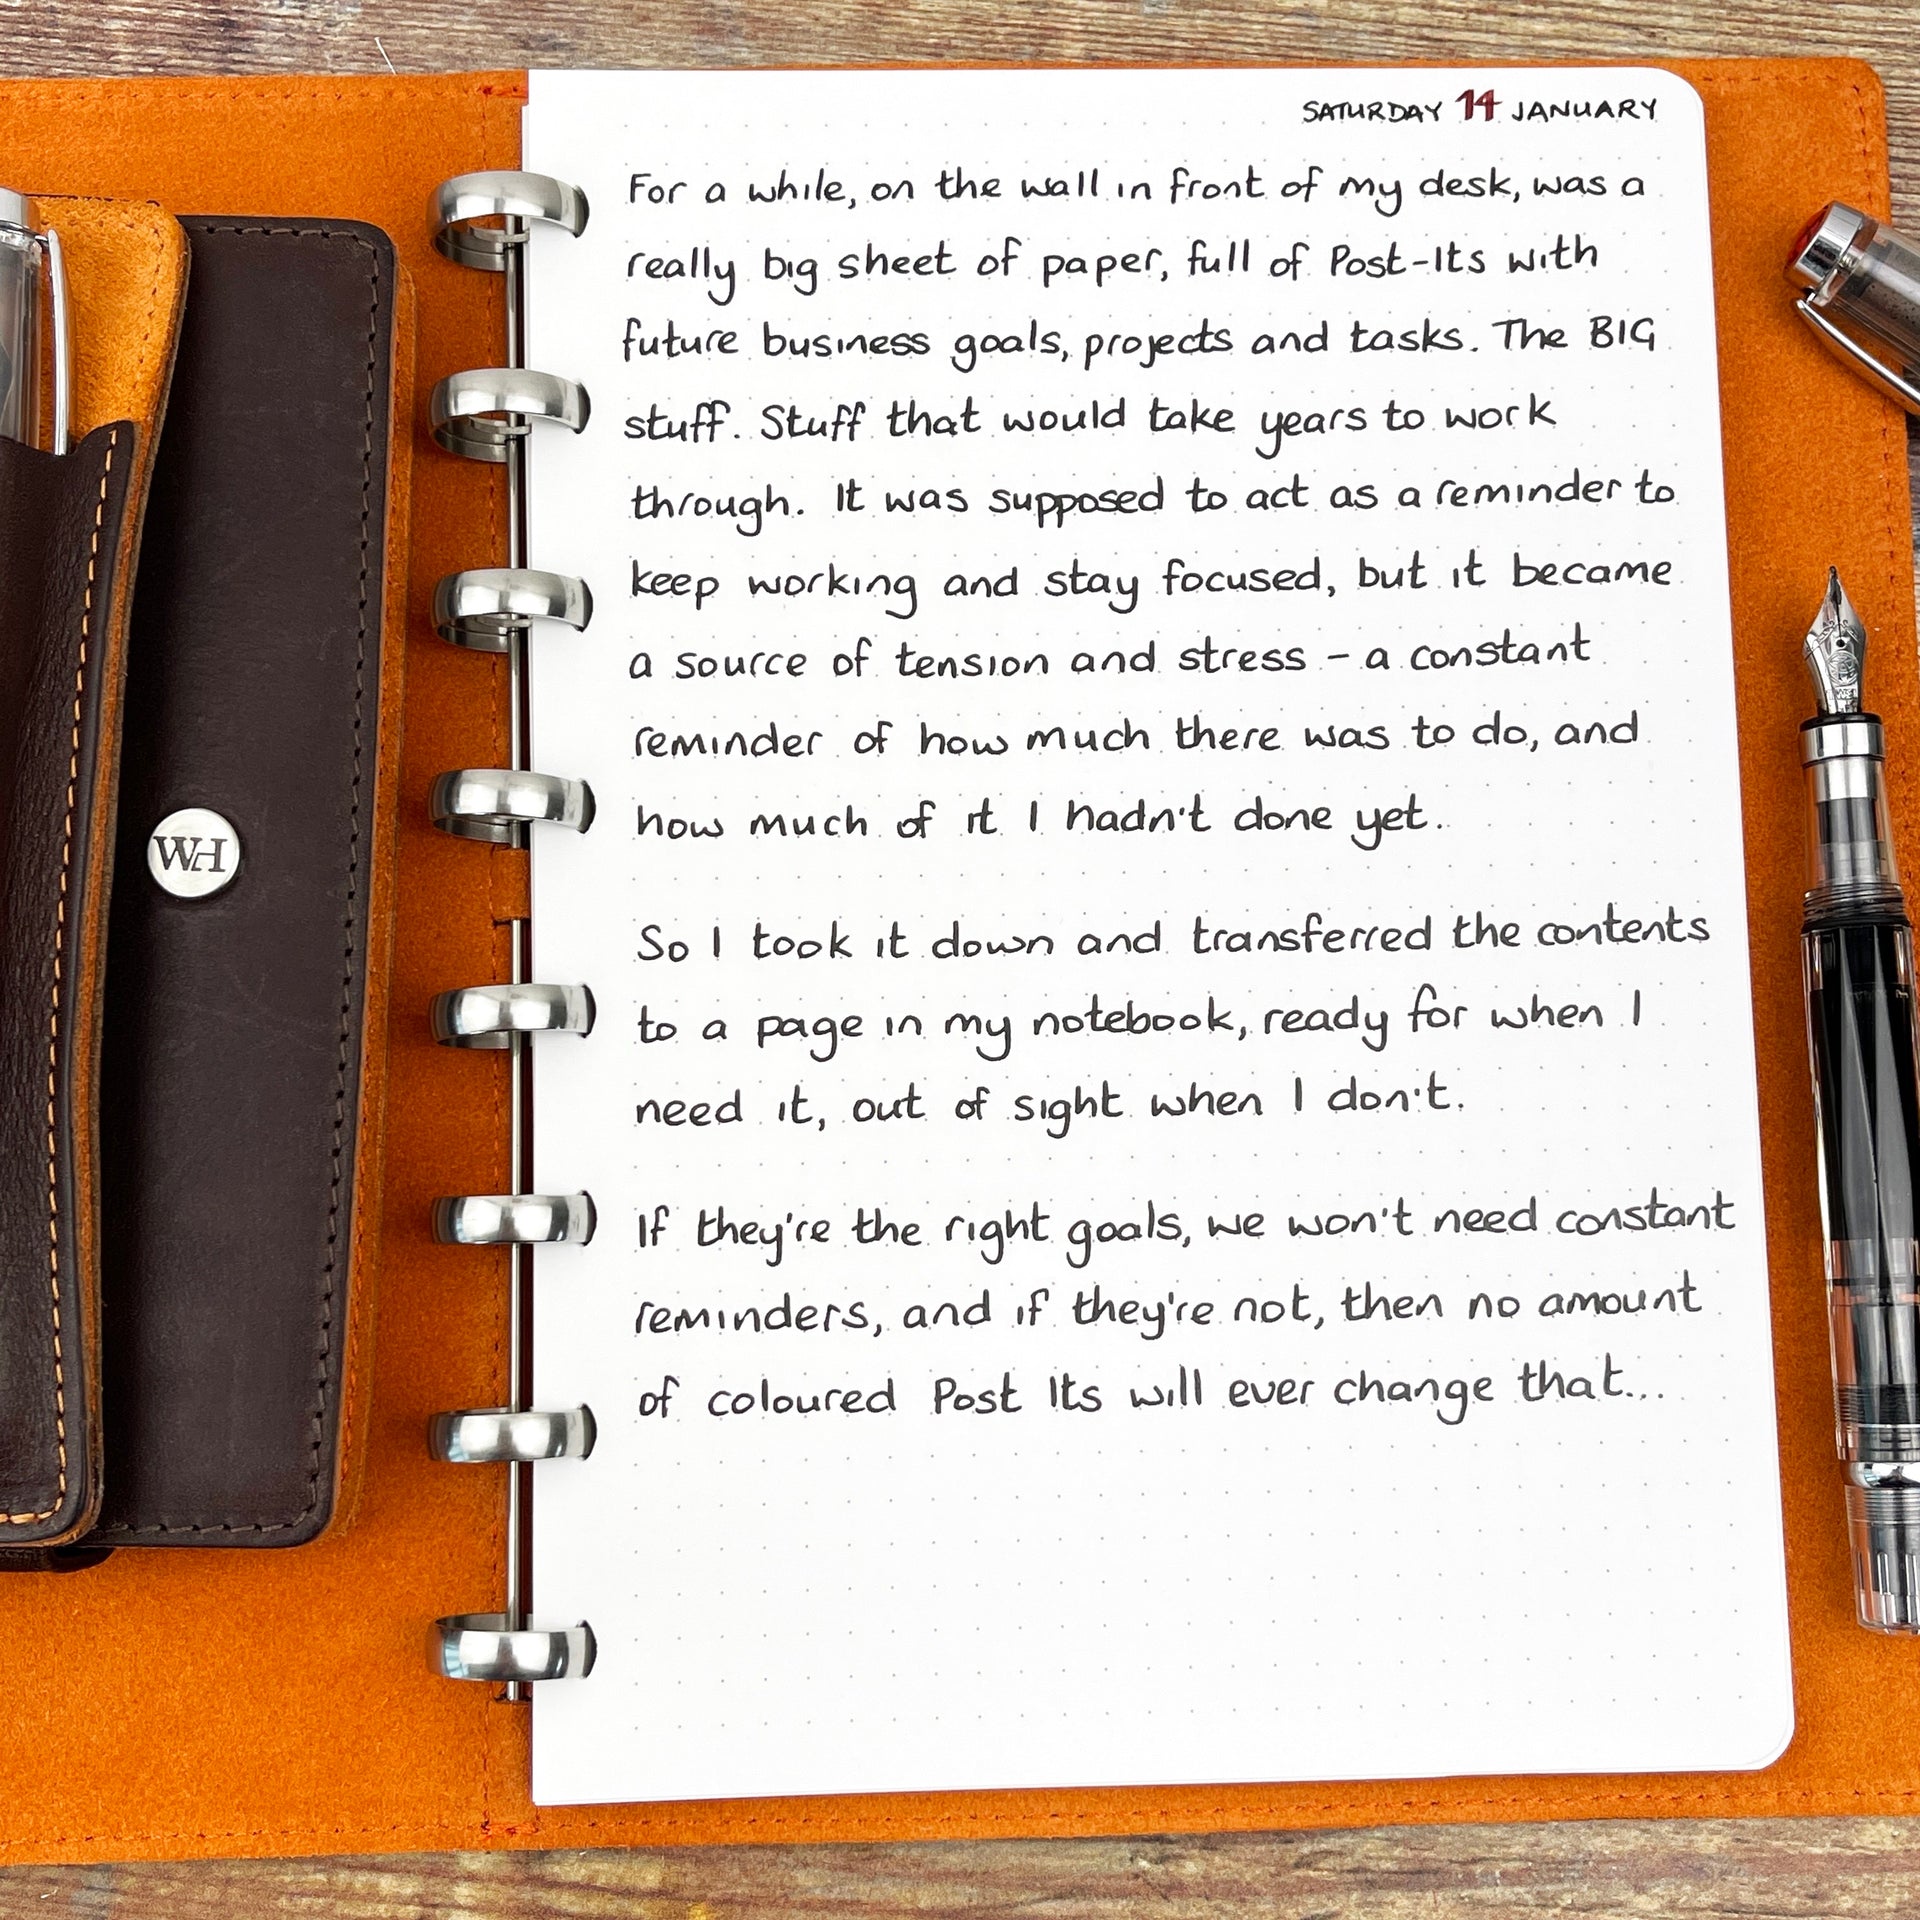 SATURDAY 14 JANUARY
For a while, on the wall in front of my desk, was a
really big sheet of paper, full of Post-Its with
future business goals, projects and tasks. The BIG
stuff. Stuff that would take years to work
through. It was supposed to act as a reminder to
keep working and stay focused, but it became
a source of tension and stress - a constant
reminder of how much there was to do, and
how much of it I hadn't done yet.
So I took it down and transferred the contents
to a page in my notebook, ready for when I
need it, out of sight when I don't.
If they're the right goals, we won't need constant
reminders, and if they're not, then no amount
of coloured Post Its will ever change that...
WH